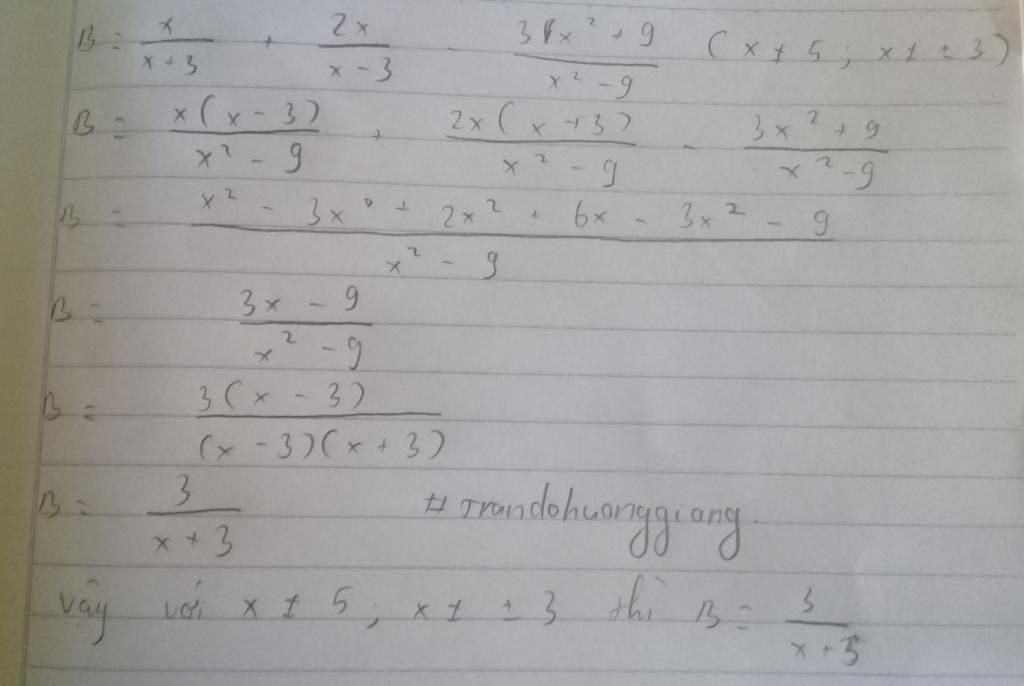 B = x/(x + 3) + 2x/(x - 3) - (3x² + 9)/(x² - 9) (x ≠ 5 ; x ≠ ± 3)
B = x(x - 3)/(x² - 9) + 2x(x + 3)/(x² - 9) - (3x² + 9)/(x² - 9)
B = (x² - 3x + 2x² + 6x - 3x² - 9)/(x² - 9)
B = (3x - 9)/(x² - 9)
B = 3(x - 3)/((x - 3)(x + 3))
B = 3/(x + 3) # Trandohuonggiang.
Vậy với x ≠ 5 ; x ≠ ± 3 thì B = 3/(x + 3)